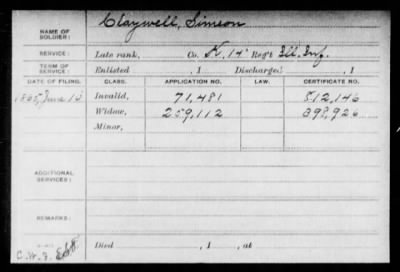 NAME OF SOLDIER: Claywell, Simeon
SERVICE: Late rank, Co. K, 14" Reg't Ill. Inf.
TERM OF SERVICE: Enlisted , 1 Discharged , 1
DATE OF FILING. CLASS. APPLICATION NO. LAW. CERTIFICATE NO.
1865, June 13 Invalid, 71,481 512,146
Widow, 259,112 398,926
Minor,
ADDITIONAL SERVICES:
REMARKS:
C.W.F.
Died , 1 , at